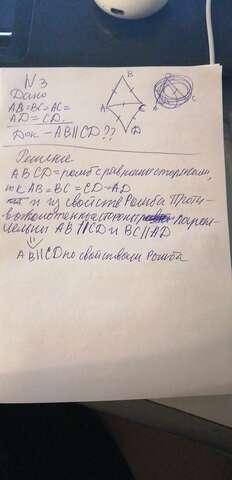 N3
Дано
AB=BC=AC=
AD=CD.
Док-AB||CD??
B
A
C
D
Решение
ABCD=ромб с равными сторонами,
т.к AB=BC=CD=AD
и из свойств Ромба Проти-
воположенные стороны Парал-
лельны AB||CD и BC||AD
AB||CD по свойствам Ромба